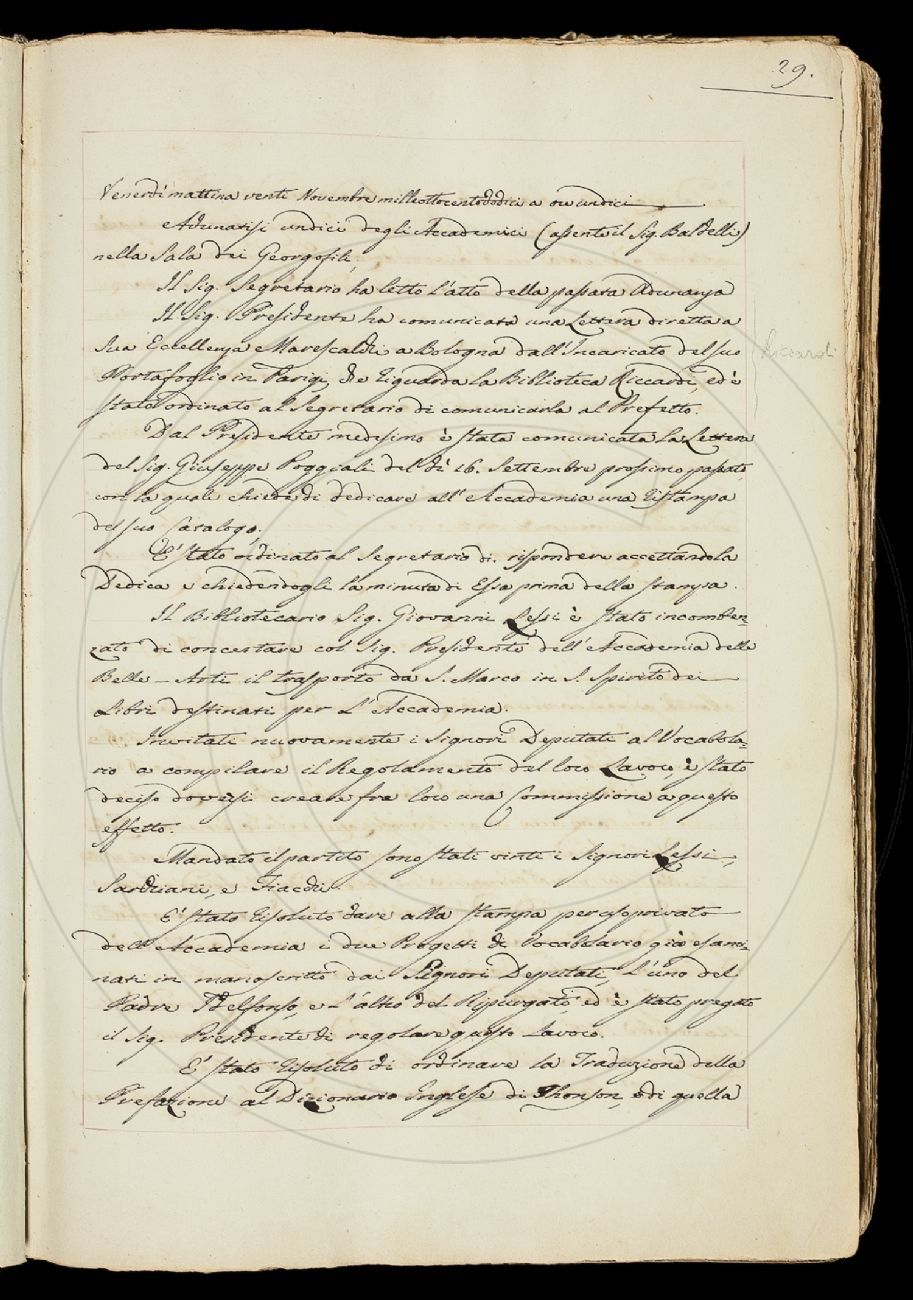 29.
Venerdì mattina venti Novembre milleottocentododici a ore undici
Adunatisi undici degli Accademici (assente il Sig. Baldelli)
nella Sala dei Georgofili,
Il Sig. Segretario ha letto l'atto della passata Adunanza
Il Sig. Presidente ha comunicata una Lettera diretta a
Sua Eccellenza Marescalchi a Bologna dall'Incaricato del suo
Riccardi
Portafoglio in Parigi, che riguarda la Biblioteca Riccardi, ed è
stato ordinato al Segretario di comunicarla al Prefetto.
Dal Presidente medesimo è stata comunicata la Lettera
del Sig. Giuseppe Poggiali del dì 26. Settembre prossimo passato,
con la quale chiede di dedicare all'Accademia una ristampa
del suo Catalogo.
E' stato ordinato al Segretario di rispondere accettando la
Dedica e chiedendogli la minuta di Essa prima della stampa.
Il Bibliotecario Sig. Giovanni Lessi è stato incomben-
zato di concertare col Sig. Presidente dell'Accademia delle
Belle-Arti il trasporto da S. Marco in S. Spirito dei
Libri destinati per l'Accademia.
Invitati nuovamente i Signori Deputati al Vocabola-
rio a compilare il Regolamento del loro Lavoro, è stato
deciso doversi creare fra loro una Commissione a questo
effetto.
Mandato il partito sono stati vinti i Signori Lessi,
Sarchiani, e Fiacchi.
E' stato risoluto dare alla stampa per uso privato
dell'Accademia i due Progetti di Vocabolario già esami-
nati in manoscritto dai Signori Deputati, l'uno del
Padre Idelfonso, e l'altro del Ripurgato, ed è stato pregato
il Sig. Presidente di regolare questo Lavoro.
E' stato risoluto di ordinare la Traduzione della
Prefazione al Dizionario Inglese di Jhonson, e di quella